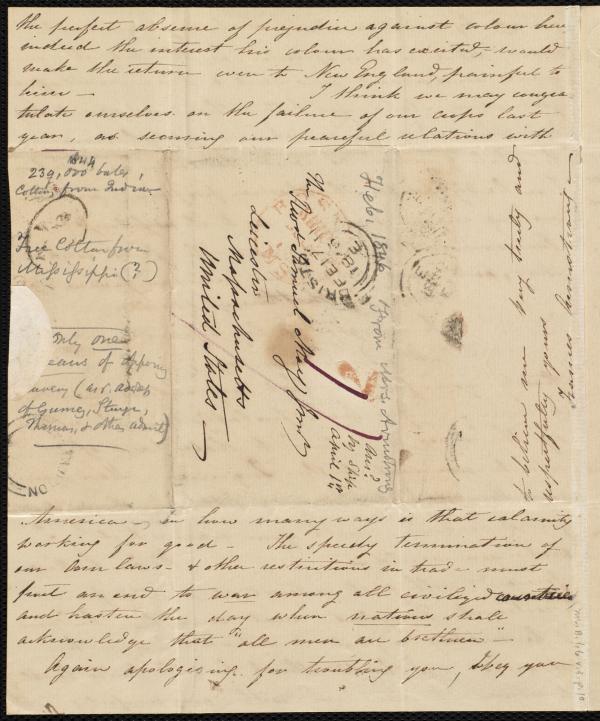 the perfect absence of prejudice against colour here
indeed the interest his colour has excited, would
make the return even to New England, painful to
him — I think we may congra
tulate ourselves on the failure of our crops last
year, as securing our peaceful relations with
1844
239,000 bales,
Cotton from Indies
Free Cotton from
Mississippi (?)
Only one
means of opposing
slavery (as r. address
of Gurney, Sturge,
Thomas, & others admit)
The Revd. Samuel May Junr
Leicester
Massachusetts
United States —
Feb. 1846 from Mrs Armstrong
Ansd.
by Ship
April 1st
BRISTOL
FE 17
1846
America — in how many ways is that calamity
working for good — The speedy termination of
our Corn laws — & other restrictions in trade must
put an end to war among all civilized countries
and hasten the day when nations shall
acknowledge that "all men are brethren —
Again apologising for troubling you, I beg you
to believe me very truly and
respectfully yours
Frances Armstrong —